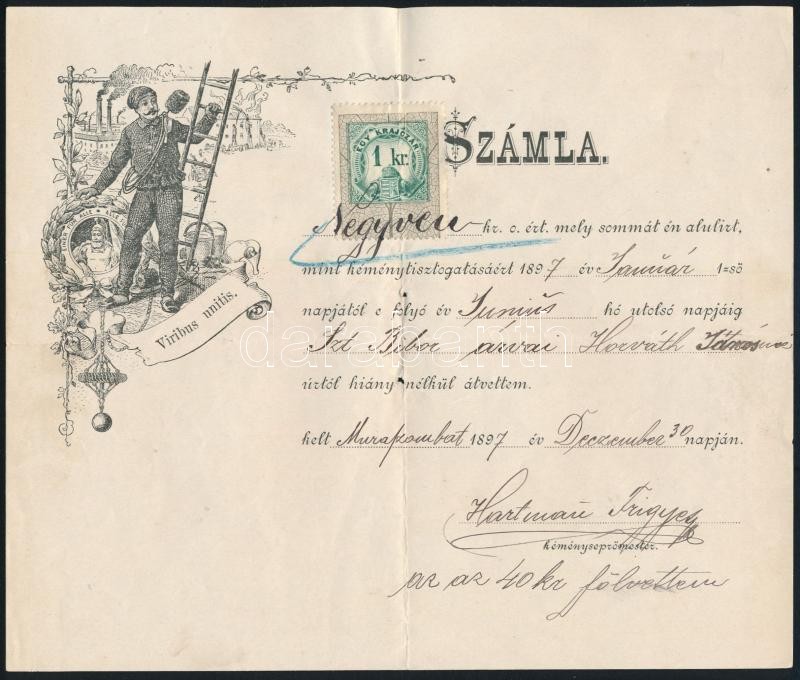 SZÁMLA.
EGY KRAJCZÁR
1 kr.
Negyven kr. o. ért. mely sommát én alulirt,
mint kéménytisztogatásáért 1897 év Január 1=ső
napjától e folyó év Junius hó utolsó napjáig
Szt Bibor árvai Horváth
úrtól hiány nélkül átvettem.
kelt Muraszombat 1897 év Deczember 30 napján.
Hartman Frigyes
kéményseprőmester.
az az 40 kr fölvettem
Viribus unitis.
darabanth